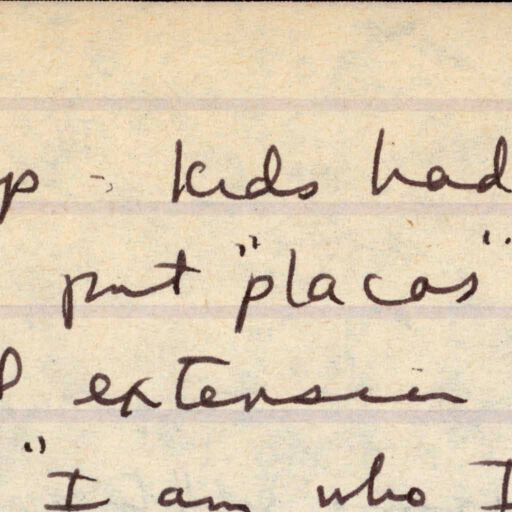 p - kids had
put "placas"
extension
"I am who I